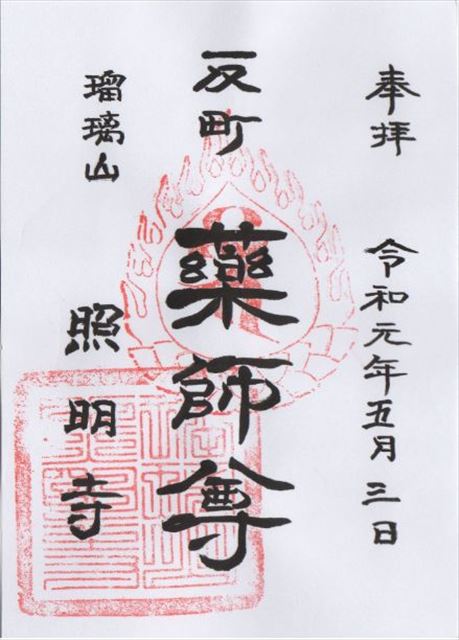 奉拝
令和元年五月三日
一反町
藥師尊
瑠璃山
照明寺